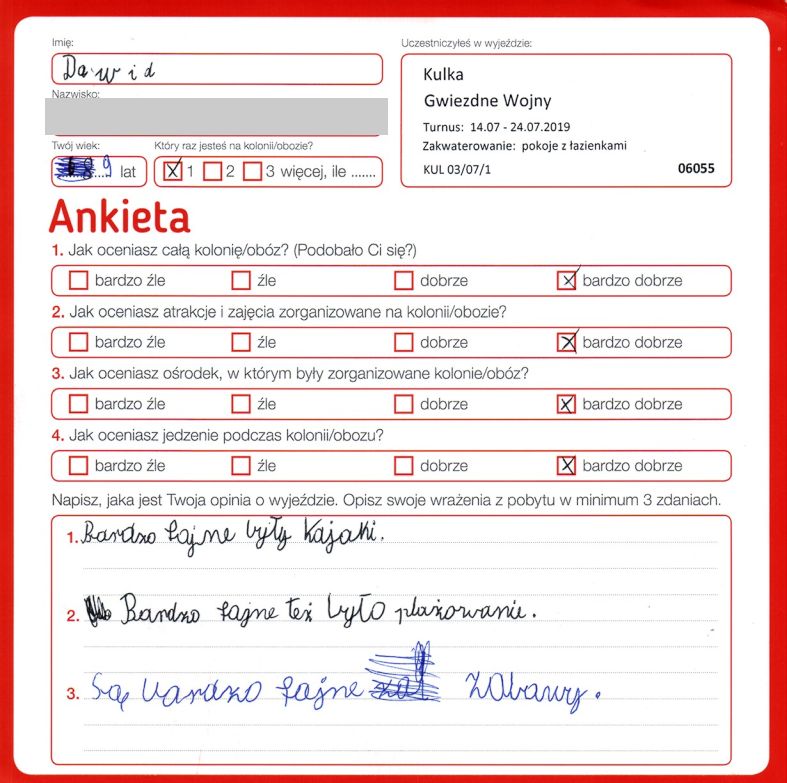 Imię:
Dawid
Uczestniczyłeś w wyjeździe:
Kulka
Gwiezdne Wojny
Turnus: 14.07 - 24.07.2019
Zakwaterowanie: pokoje z łazienkami
KUL 03/07/1 06055
Nazwisko:
Twój wiek: Który raz jesteś na kolonii/obozie?
9 lat X 1 2 3 więcej, ile .......
Ankieta
1. Jak oceniasz całą kolonię/obóz? (Podobało Ci się?)
bardzo źle źle dobrze X bardzo dobrze
2. Jak oceniasz atrakcje i zajęcia zorganizowane na kolonii/obozie?
bardzo źle źle dobrze X bardzo dobrze
3. Jak oceniasz ośrodek, w którym były zorganizowane kolonie/obóz?
bardzo źle źle dobrze X bardzo dobrze
4. Jak oceniasz jedzenie podczas kolonii/obozu?
bardzo źle źle dobrze X bardzo dobrze
Napisz, jaka jest Twoja opinia o wyjeździe. Opisz swoje wrażenia z pobytu w minimum 3 zdaniach.
1. Bardzo fajne były Kajaki.
2. Bardzo fajne też było plażowanie.
3. Są bardzo fajne zabawy.